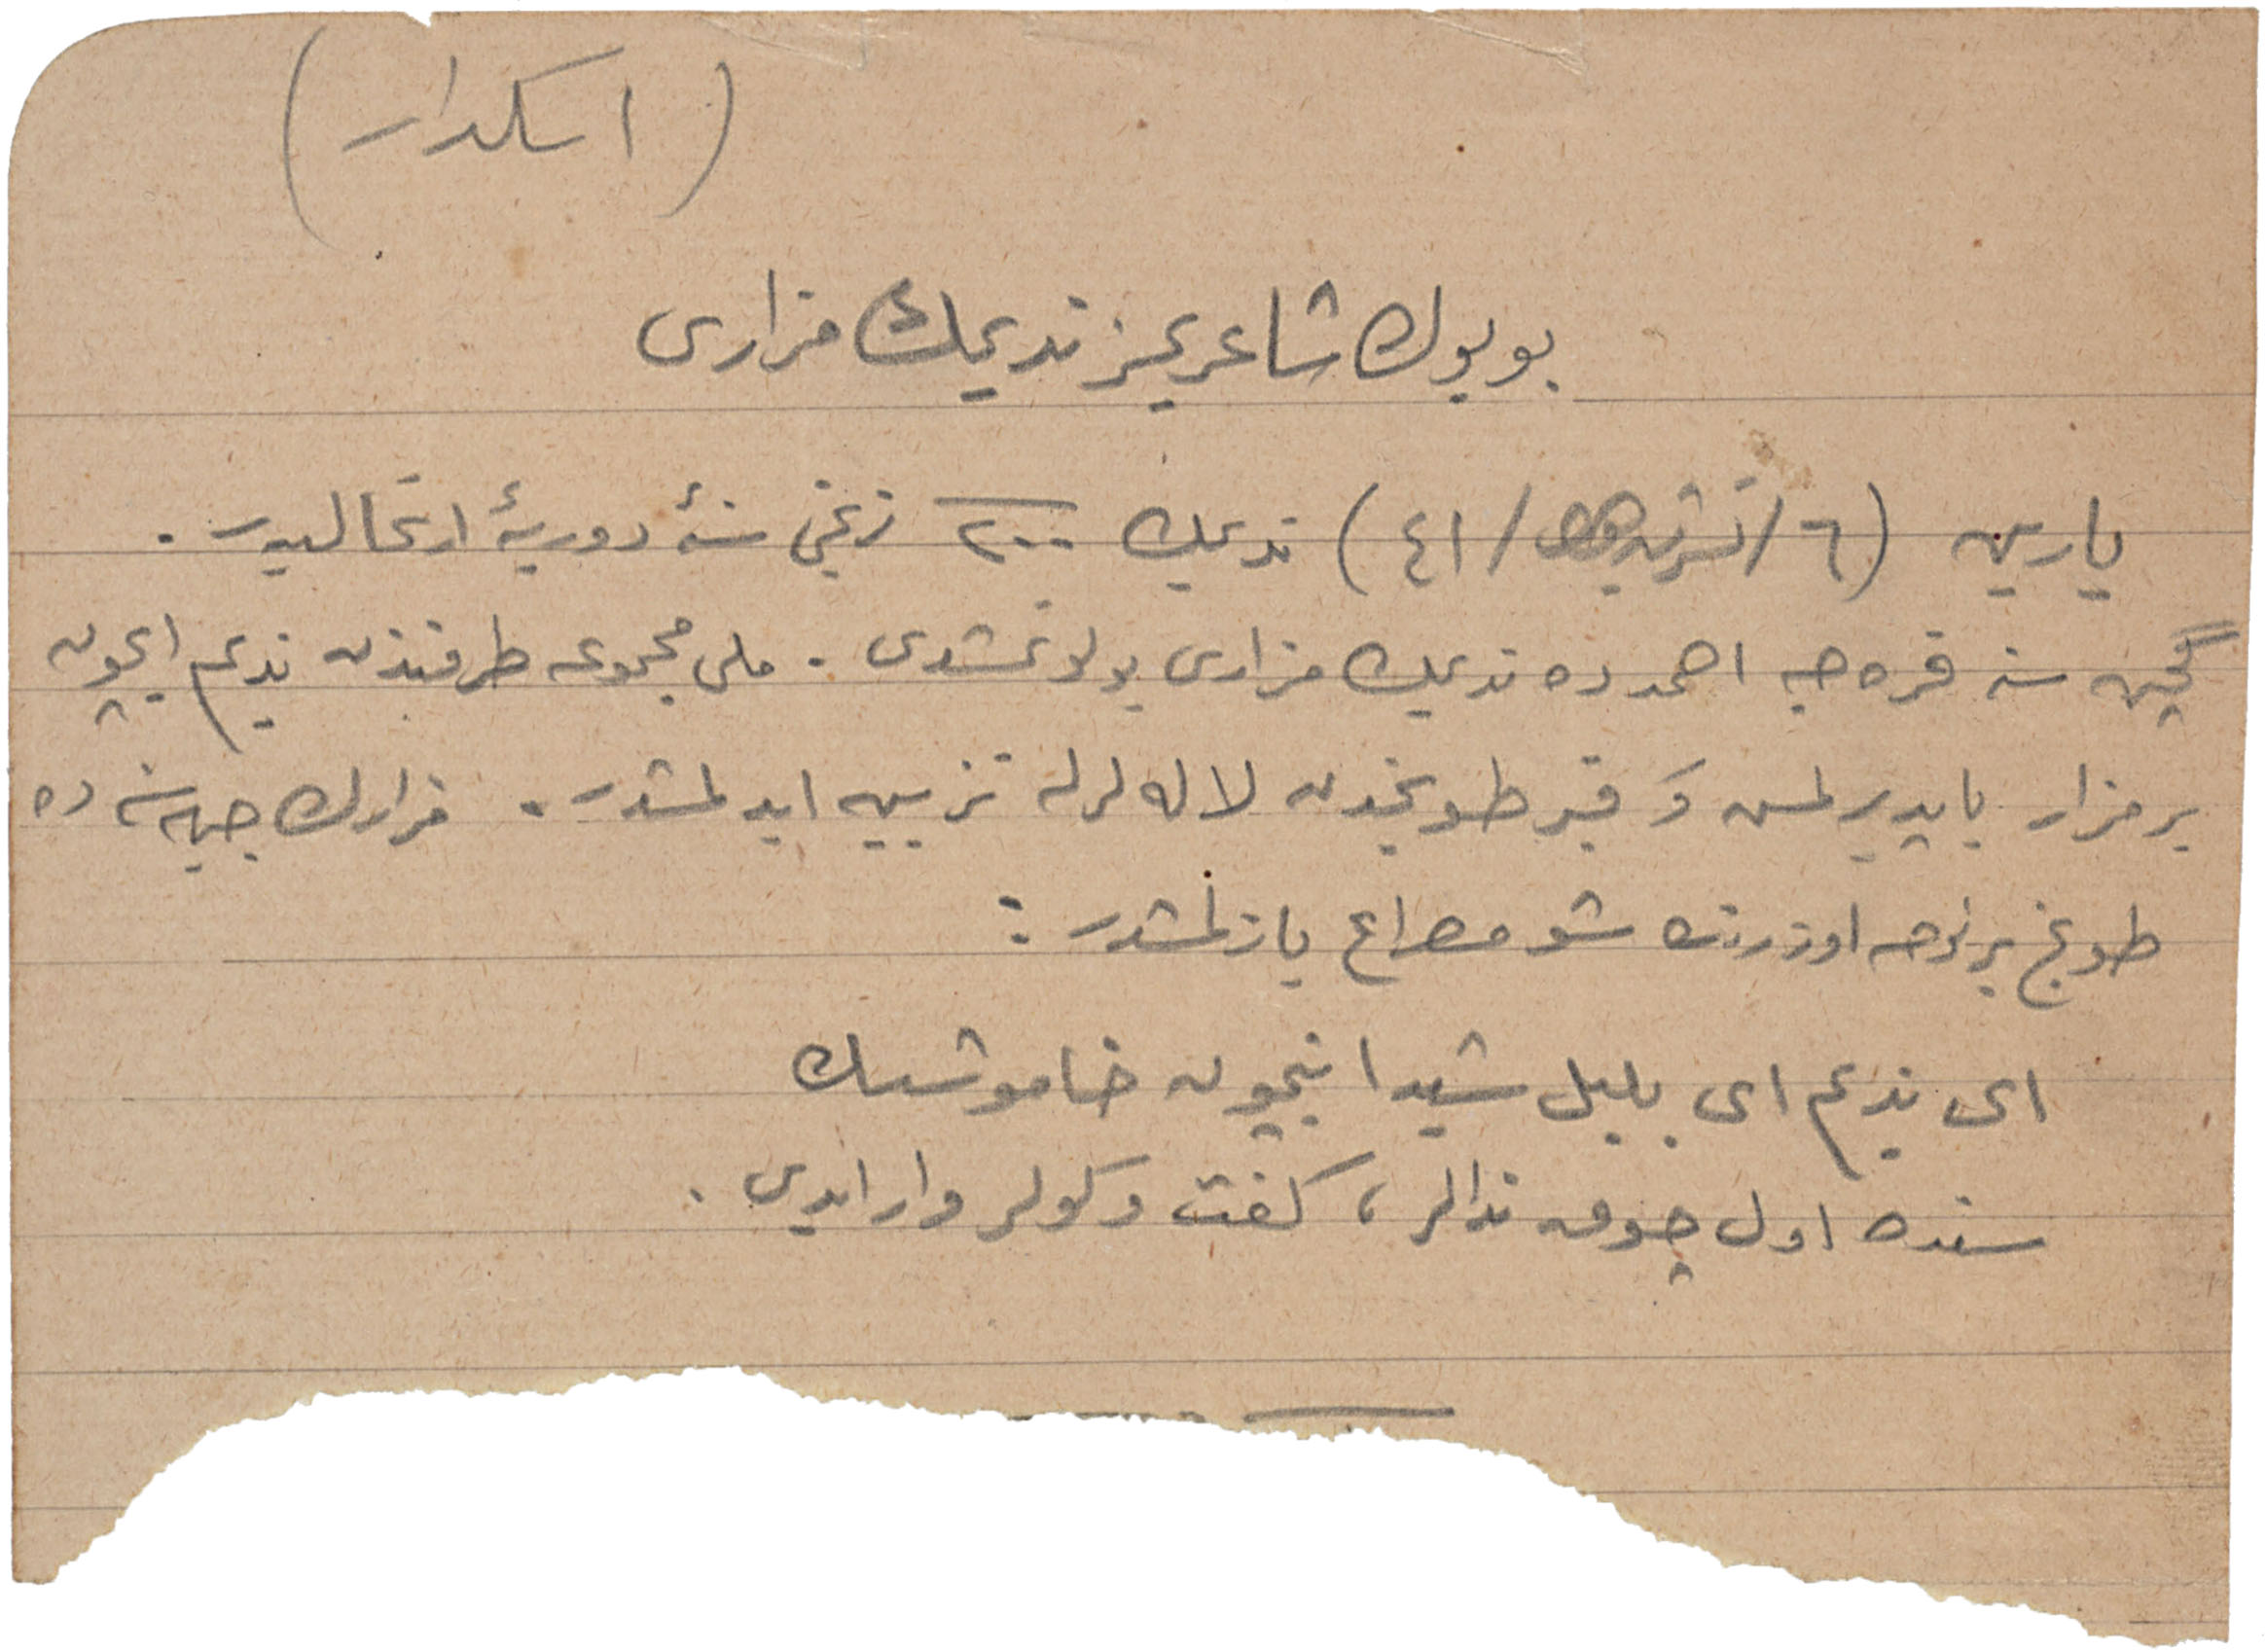 (اسكدار)
بويوك شاعريمز نديمك مزارى
يارين (٦/تشرين/٤١) نديمك ٢٠٠ نجى سنۀ دوريۀ ارتحاليدر.
گچن سنه قره جه احمدده نديمك مزارى بولونمشدى. ملى مجموعه طرفندن نديم ايچون
بر مزار ياپديرلمش و قبر طونجدن لاله لرله تزيين ايدلمشدر. مزارك جبهه سنده
طونج بر لوحه اوزرنده شو مصراع يازلمشدر:
اى نديم اى بلبل شيدا نيچون خاموشسك
سنده اول چوق نوالر، گفت وكولر وار ايدى.